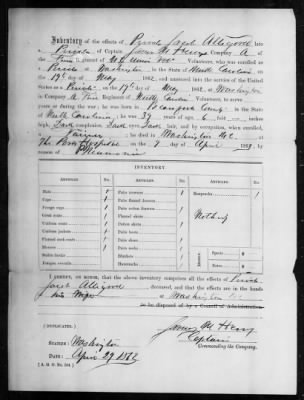 Inventory of the effects of Private Jacob Alligood late
a Private of Captain James M. Henry Company A of
the First N.C. Union Vol Volunteers, to serve as
Private at Washington in the State of North Carolina, on
the 19th day of May 1862, and mustered into the service of the United
States as a Private on the 19th day of May 1862, at Washington
Company A First Regiment of North Carolina Volunteers, to serve
years or during the war; he was born in Beaufort County in the State
of North Carolina; he was 39 years of age, 6 feet inches
high, Dark complexion, Dark eyes, Dark hair, and by occupation, when enrolled,
a Farmer; he died in Washington N.C.
The Post Hospital on the 7 day of April 186, by
reason of Pneumonia
INVENTORY
ARTICLES No. ARTICLES No. ARTICLES No.
Hats 1 Pairs trowsers 1 Knapsacks 1
Caps 1 Pairs flannel drawers
Forage caps Pairs cotton drawers
Great coats 1 Flannel shirts Nothing
Uniform coats Cotton shirts
Uniform jackets Pairs boots
Flannel sack coats Pairs shoes
Blouses Pairs socks
Stable frocks Blankets Specie $
Fatigue overalls Haversacks Notes $
I CERTIFY, ON HONOR, that the above inventory comprises all the effects of Private
Jacob Alligood deceased, and that the effects are in the hands
of his Wife at Washington N.C.
to be disposed of by a Council of Administration.
James M. Henry
Captain
Commanding the Company.
(DUPLICATES.)
STATION: Washington
DATE: April 29 186